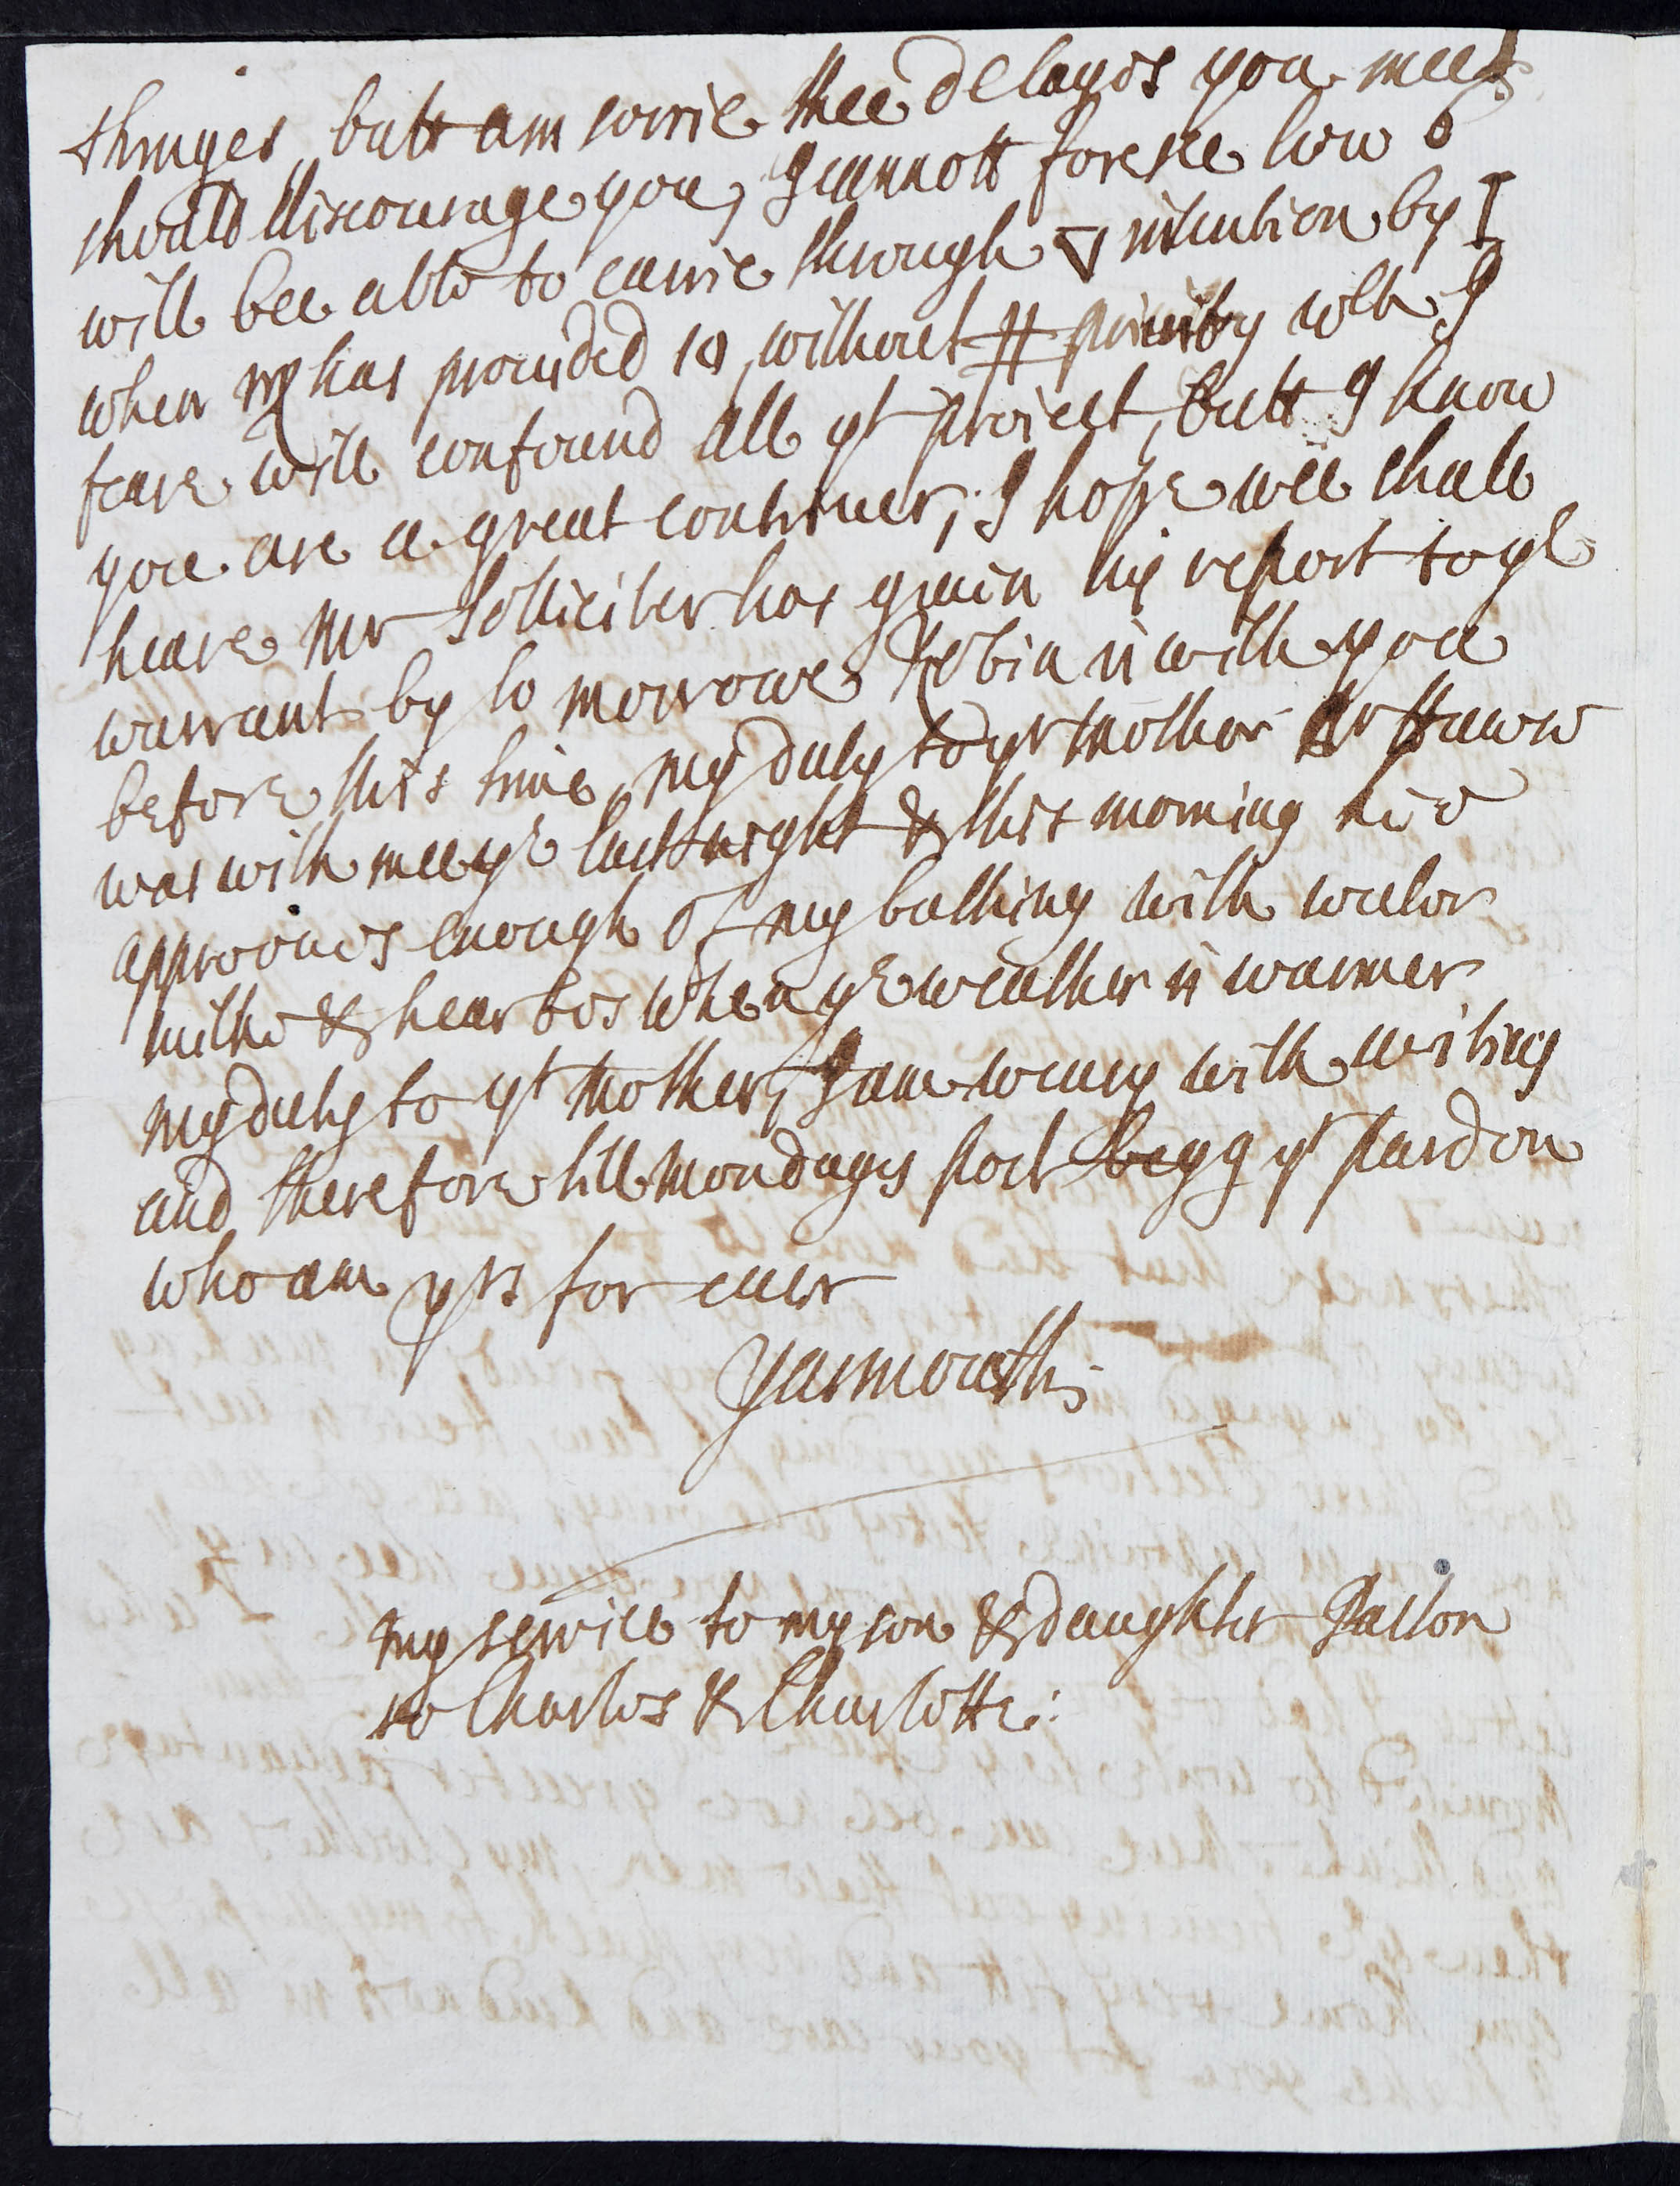 thinges, butt am sorrie thee delayes you meet
should discourage you, I cannott foresee how 6
will bee able to carrie through ∇ intention by I
when has prouided 10, without # priuity wch I
feare will confound all yr proiect, butt I know
you are a great contriuer, I hope wee shall
heare Mr Solliciter has giuen his report to ye
warrant by to morrowe Robin is with you
before this time, my duty to yr Mother Dr Hawe
was with mee ye last night & this morning hee
approoues enough of my bathing with water
milke & hearbes when ye weather is warmer
my duty to yr Mother, I am weary with writing
and therefore till Mondayes post begg yr pardon
who am yrs for euer
Yarmouth;
my seruice to my son & daughter Paston
to Charles & Charlotte: